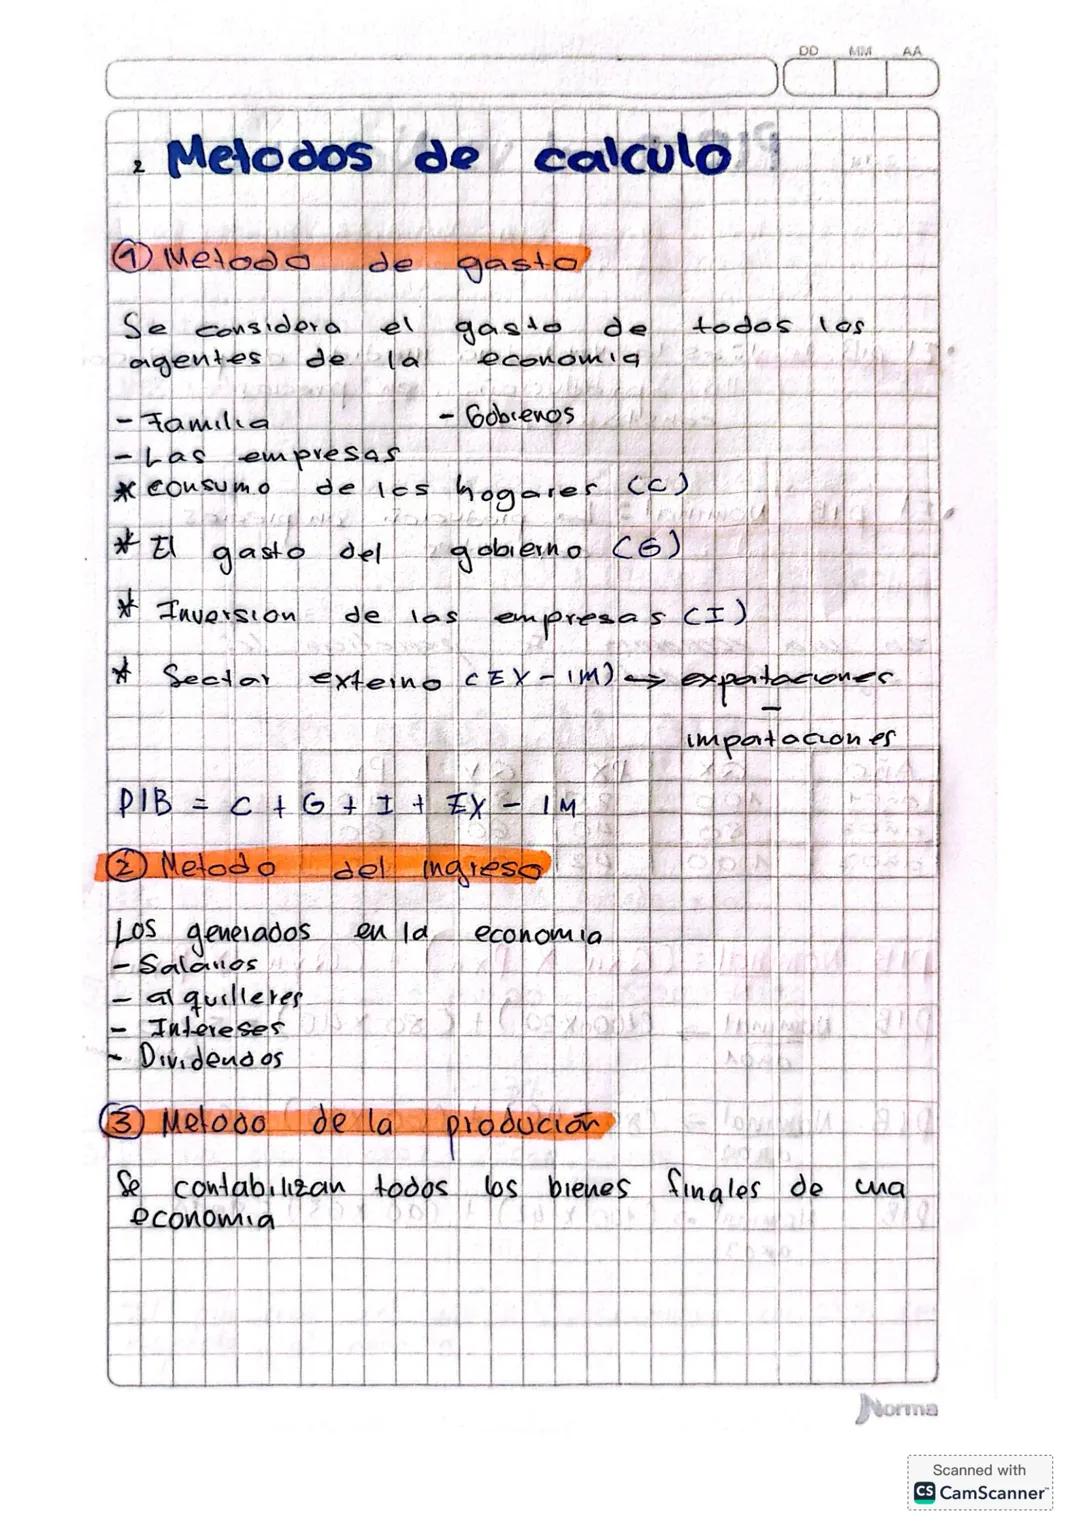 DD MM AA
2 Metodos de calculo
① Metodo de gasto
Se considera el gasto de todos los
agentes de la economia
- Familia - Gobienos
- Las empresas
* consumo de los hogares (C)
* El gasto del gobierno (G)
* Inversion de las empresas (I)
* Sector externo (EX - IM) → exportaciones
-
importaciones
PIB = C + G + I + EX - IM
② Metodo del ingreso
Los generados en la economia
- Salarios
- alquileres
- Intereses
- Dividendos
③ Metodo de la produción
Se contabilizan todos los bienes finales de una
economia
Norma
Scanned with
CS CamScanner